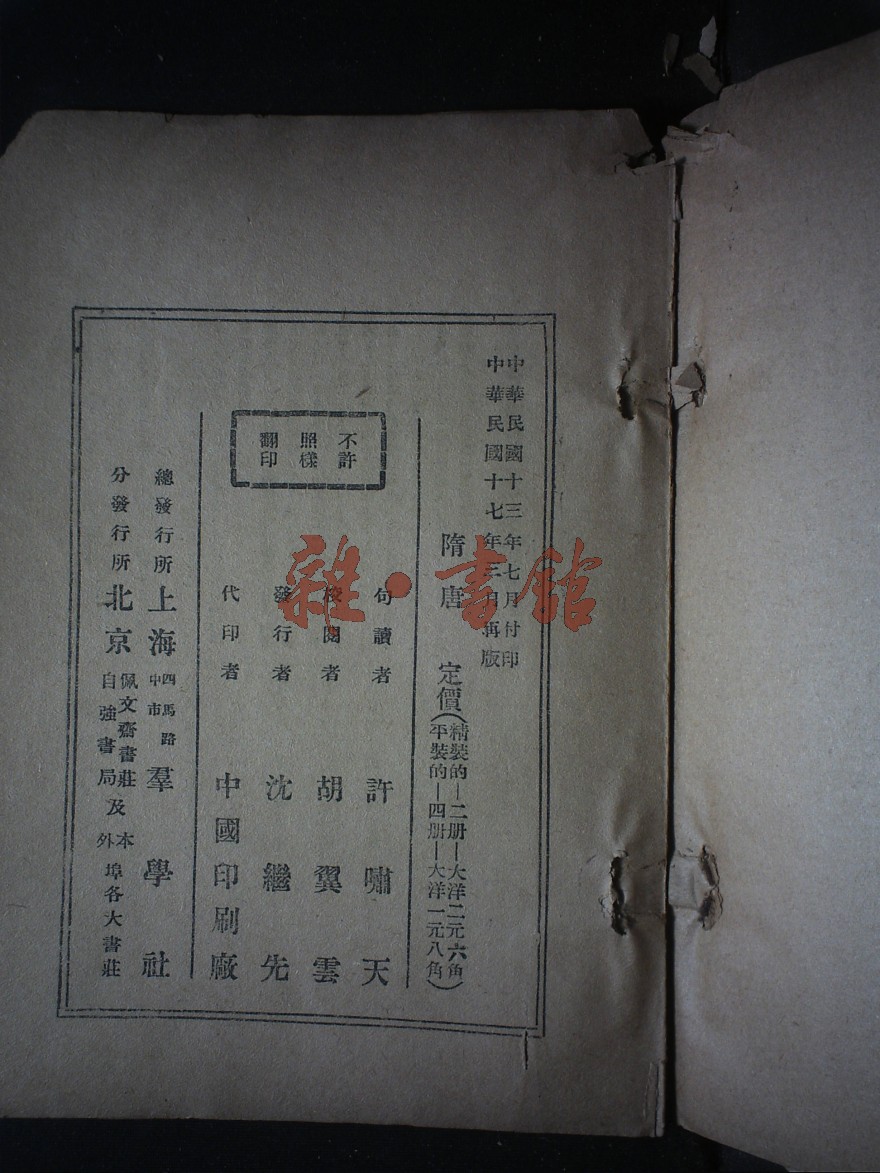 中華民國十三年七月付印
中華民國十七年三月再版
隋唐 定價(精裝的—二册—大洋二元六角
平裝的—四册—大洋一元八角)
句讀者 許嘯天
校閱者 胡翼雲
發行者 沈繼先
代印者 中國印刷廠
不許
照樣
翻印
總發行所 上海 四馬路中市 羣學社
分發行所 北京 佩文齋書莊 自強書局 及 本外 埠各大書莊
雜·書館